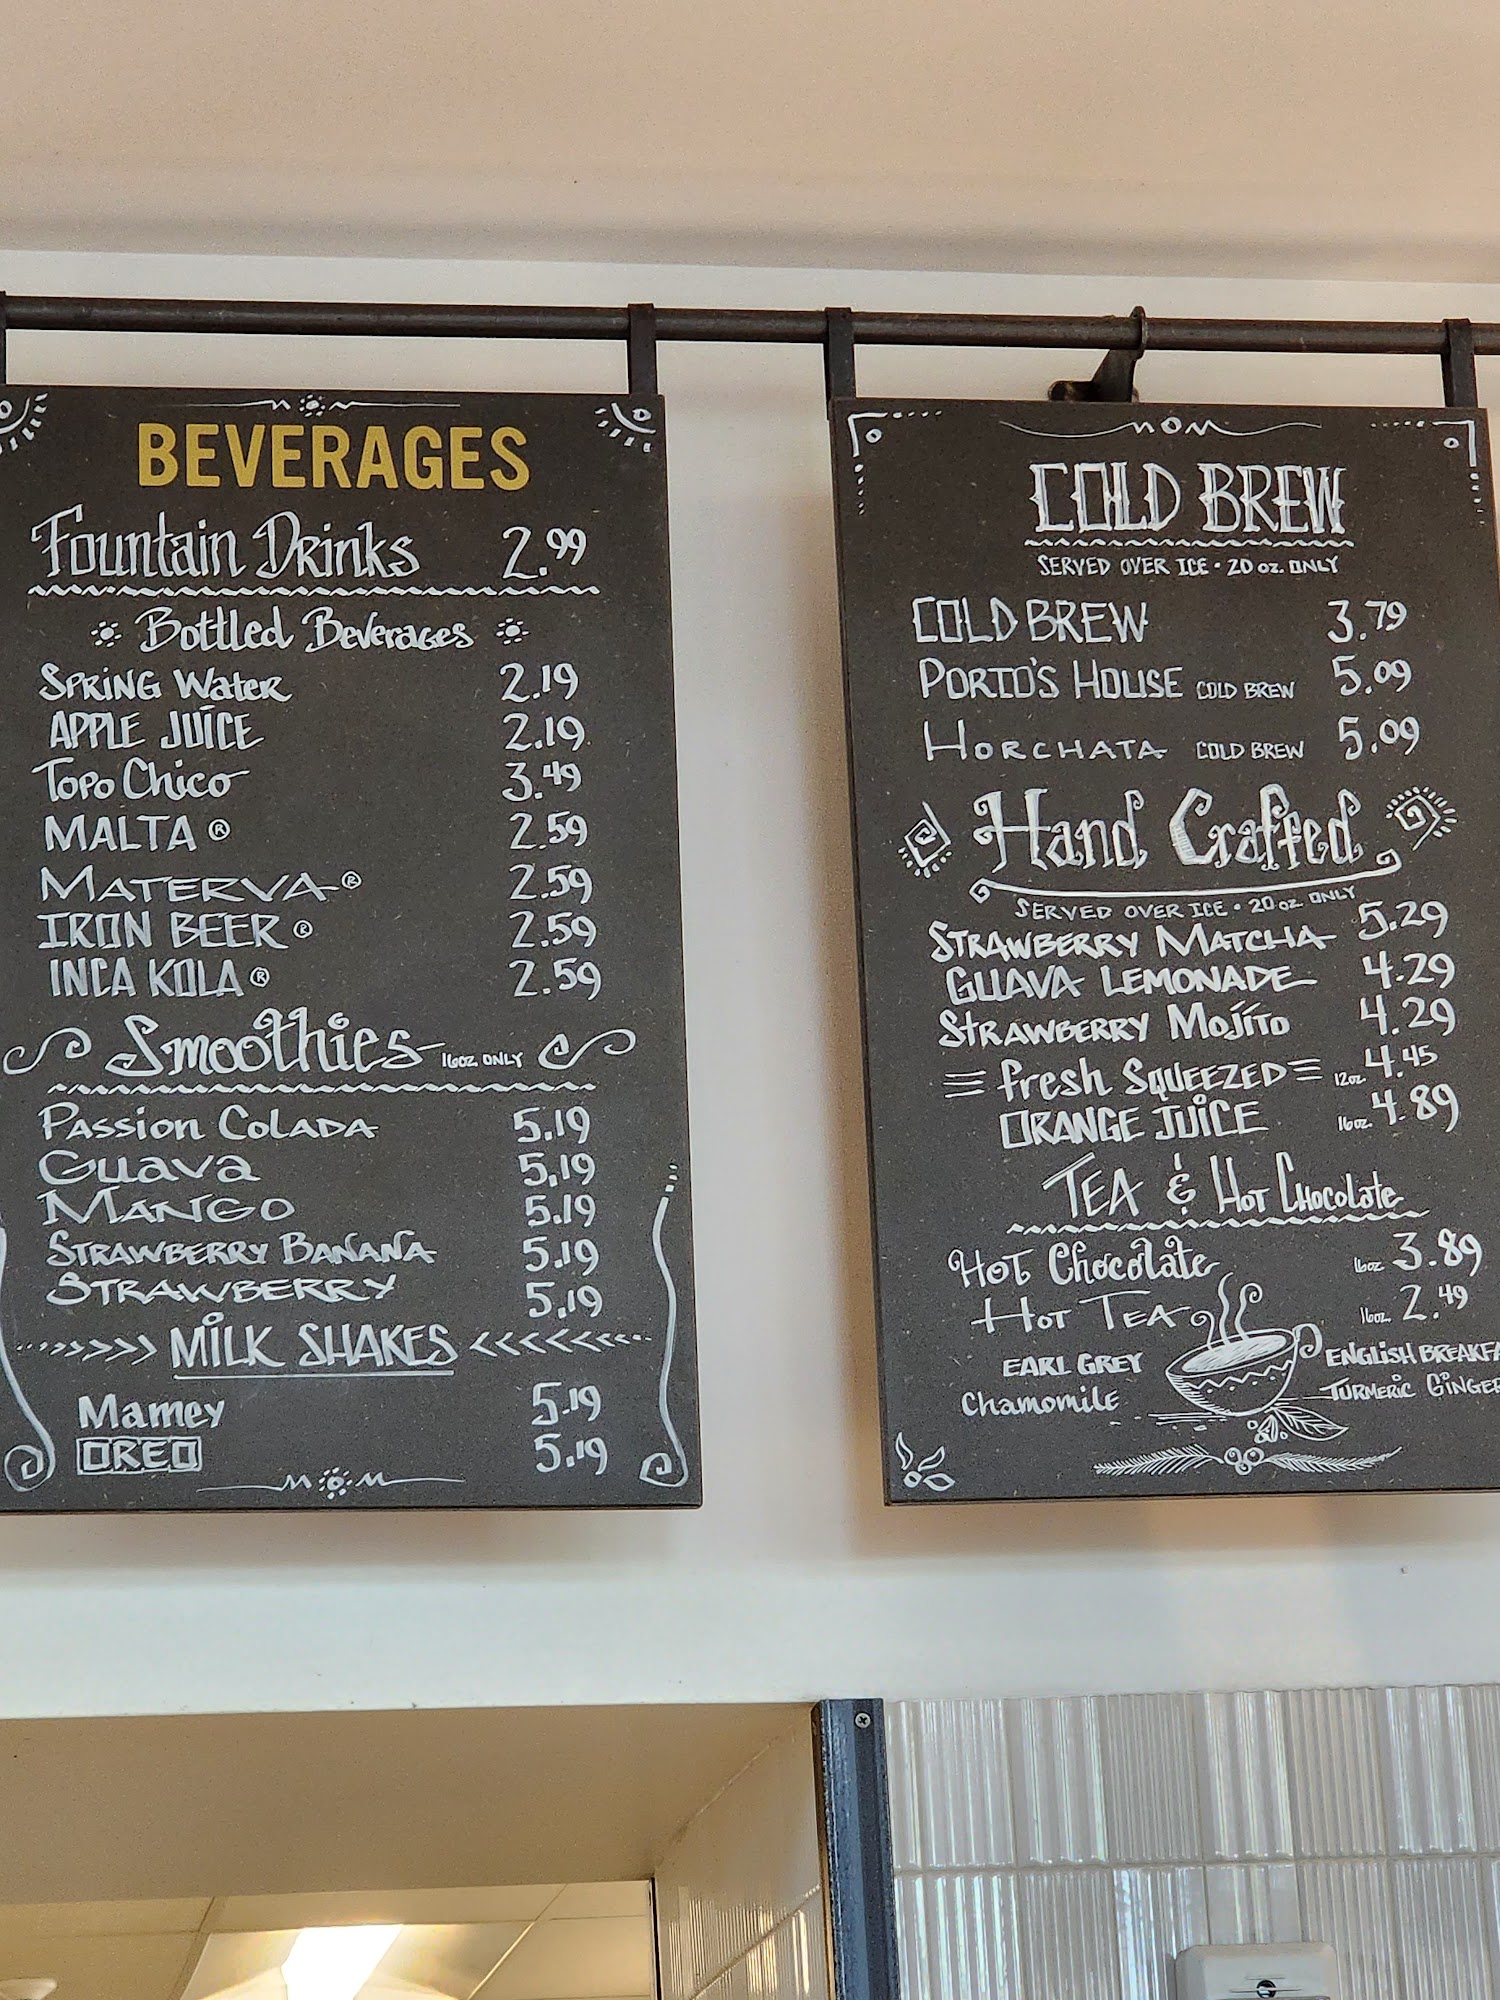 BEVERAGES
Fountain Drinks 2.99
Bottled Beverages
Spring Water 2.19
APPLE JUICE 2.19
Topo Chico 3.49
MALTA ® 2.59
MATERVA ® 2.59
IRON BEER ® 2.59
INCA KOLA ® 2.59
Smoothies 16oz. ONLY
Passion Colada 5.19
Guava 5.19
MANGO 5.19
STRAWBERRY BANANA 5.19
STRAWBERRY 5.19
MILK SHAKES
Mamey 5.19
OREO 5.19
COLD BREW
SERVED OVER ICE • 20 oz. ONLY
COLD BREW 3.79
PORTO'S HOUSE COLD BREW 5.09
HORCHATA COLD BREW 5.09
Hand Crafted
SERVED OVER ICE • 20 oz ONLY
STRAWBERRY MATCHA 5.29
GUAVA LEMONADE 4.29
STRAWBERRY MOJITO 4.29
fresh SQUEEZED 12oz. 4.45
ORANGE JUICE 16oz. 4.89
TEA & Hot Chocolate
Hot Chocolate 16oz 3.89
Hot TEA 16oz. 2.49
EARL GREY ENGLISH BREAKFA
Chamomile TURMERIC GINGER